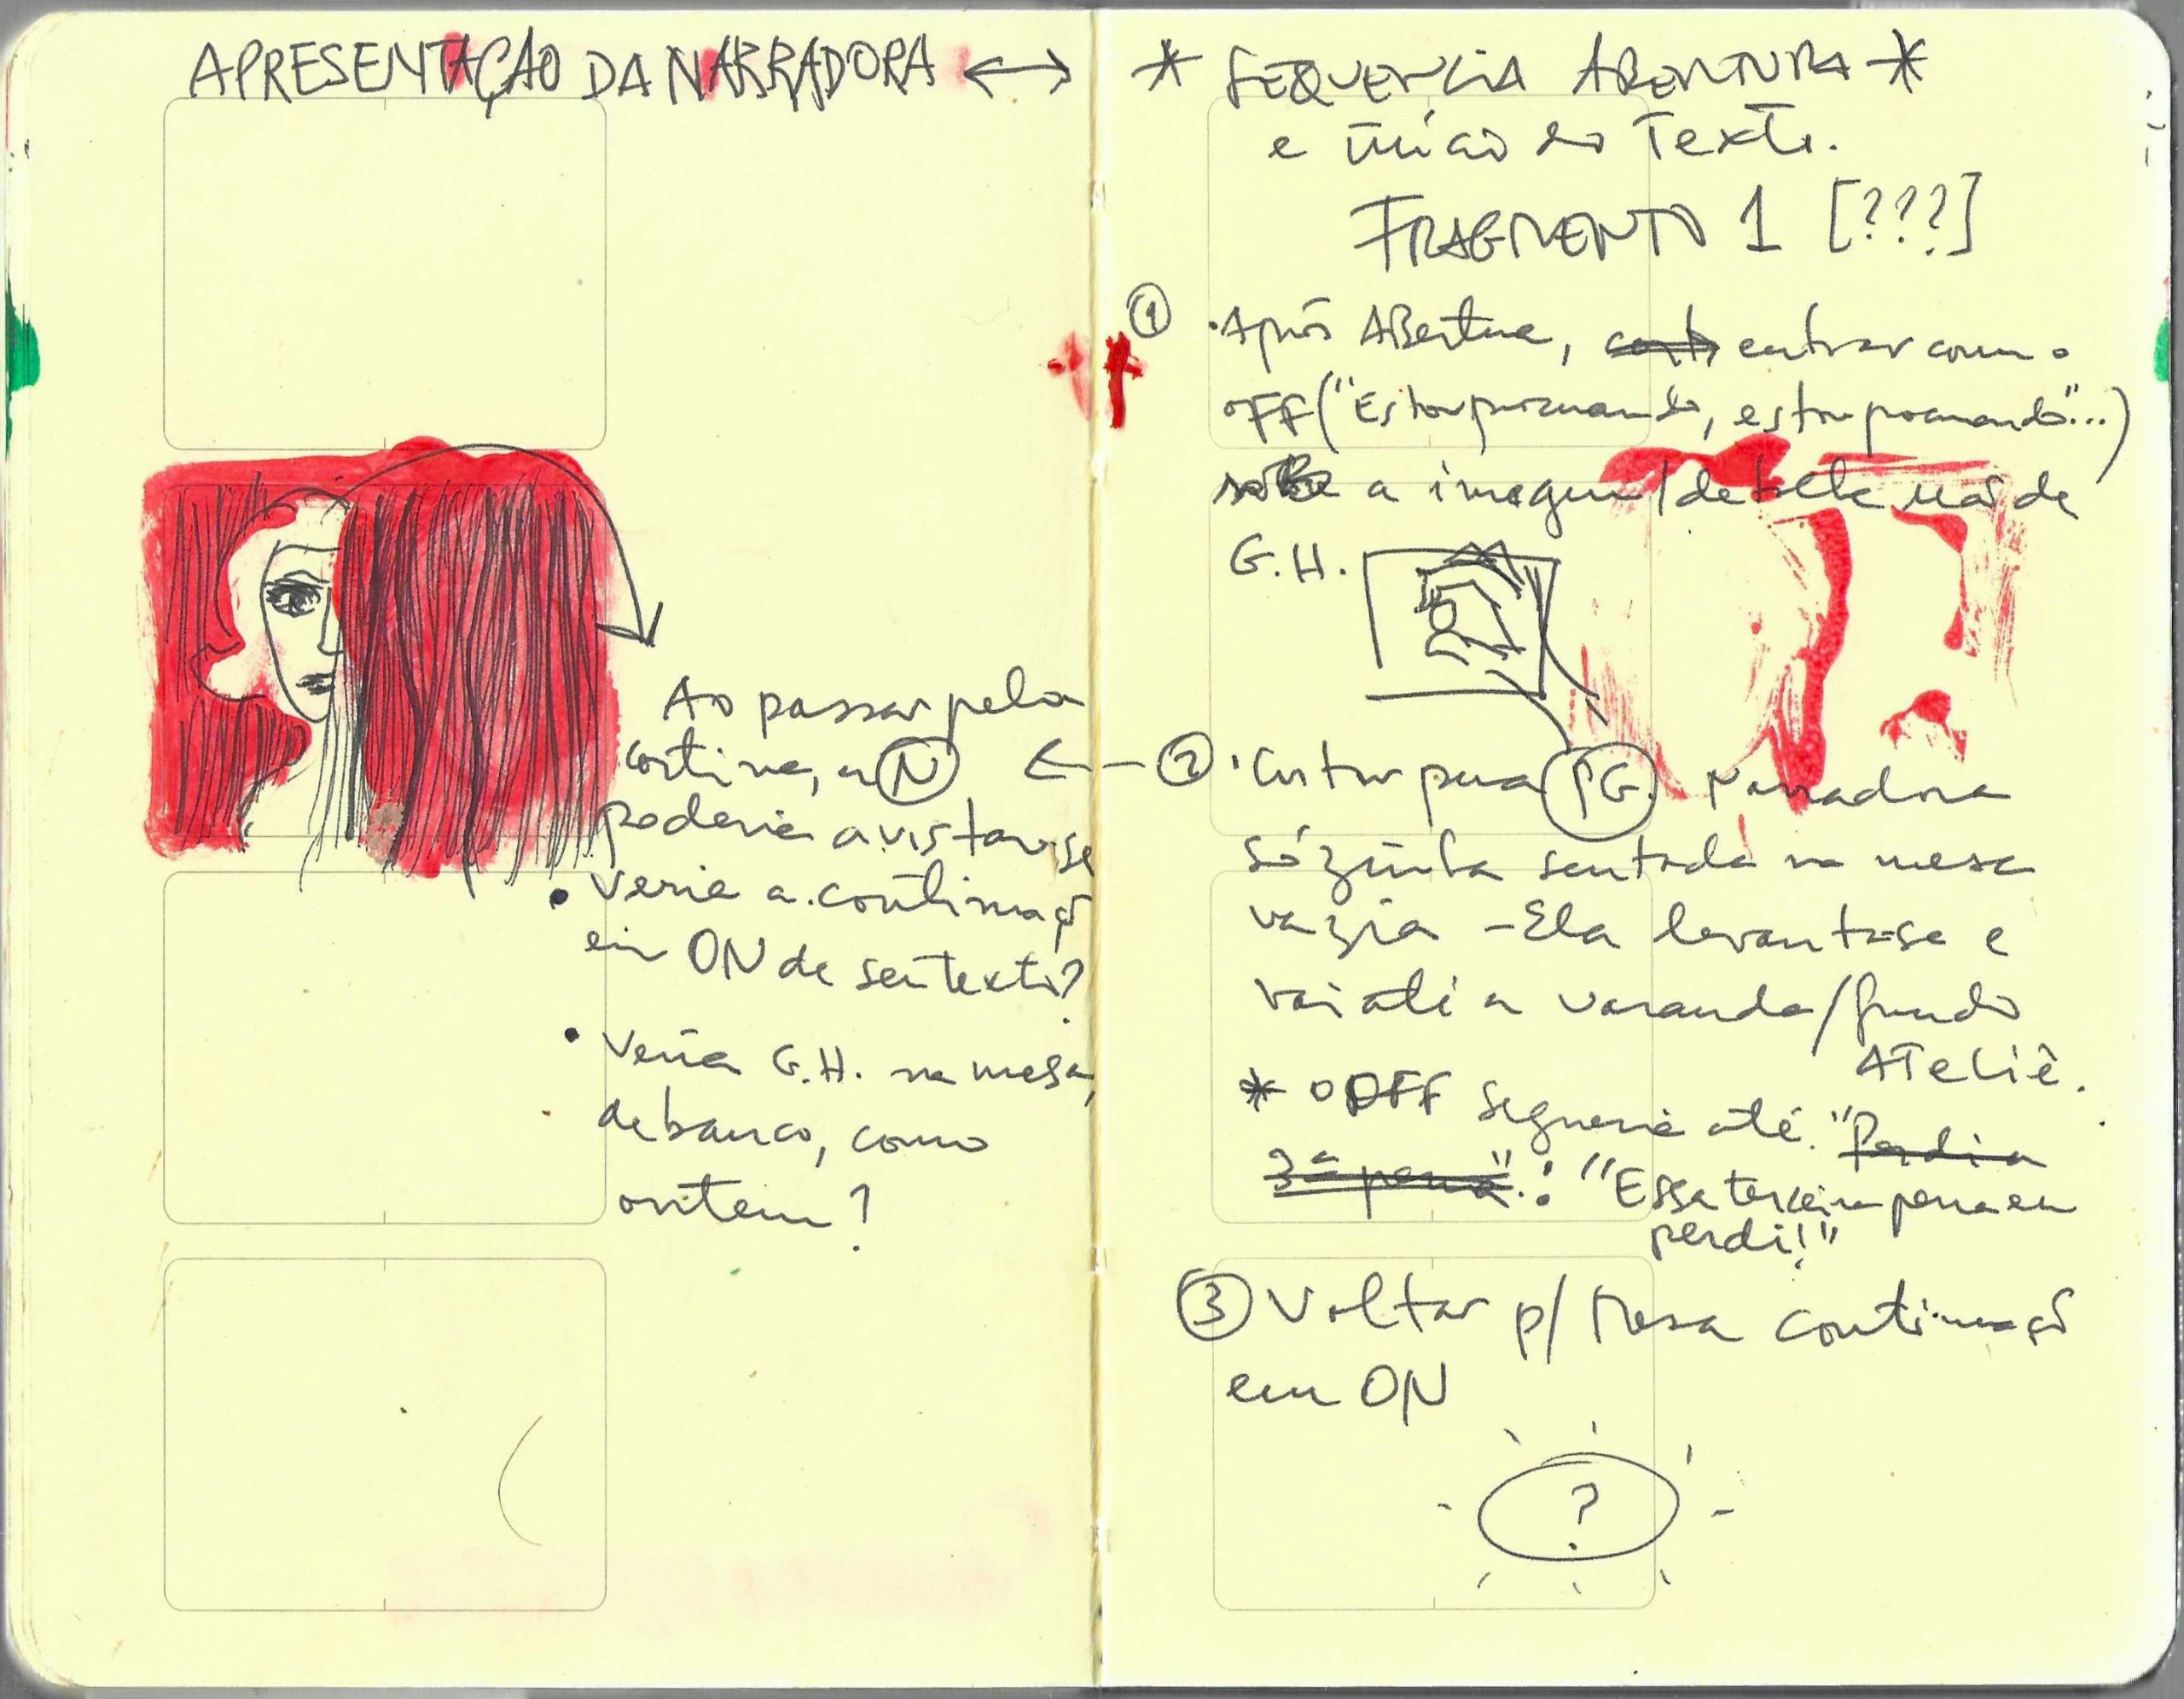 APRESENTAÇÃO DA NARRADORA ↔
Ao passar pela
cortina, a N
poderia avistar-se
• Veria a continuaçã
em ON de seu texto?
• Veria G.H. na mesa,
de branco, como
ontem?
* SEQUENCIA ABERTURA *
e início do Texto.
FRAGMENTO 1 [???]
1 • Após ABertura, entrar com o
OFF ("Estou procurando, estou procurando"...)
soBre a imagem/detalhe mão de
G.H.
← 2 • Cortar para PG. Narradora
sózinha sentada na mesa
vazia - Ela levanta-se e
vai até a varanda/fundo
ATeliê.
* o OFF segueria até. "Perdi a
3ª perna". : "Essa terceira perna eu
perdi!"
3 Voltar p/ Mesa continuaçã
em ON
?